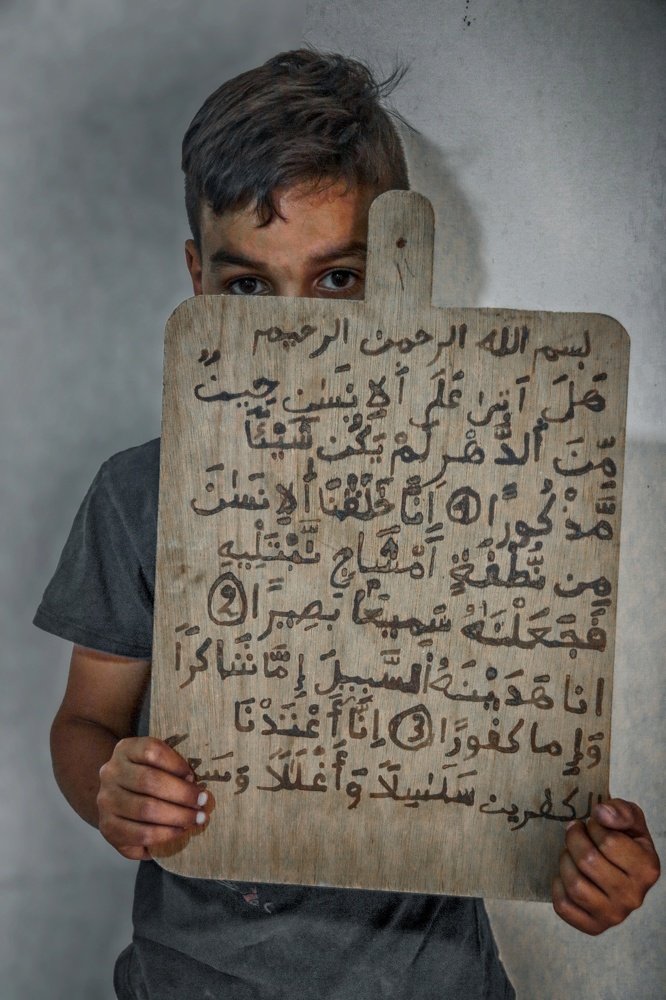 بسم الله الرحمن الرحيم
هَلَ آتىٰ عَلَى ألاِنَسَٰنِ حِينٌ
مِّنَ ألدَّهْرِ لَمْ يَكُن شَيْئاً
مَّذْكُورًا ① اِنَّا خَلَقْنَا ألاِنسَٰنَ
مِن نُّطْفَةٍ آمْشَاجٍ نَّبْتَلِيهِ
فَجَعَلْنَٰهُ سَمِيعَاً بَصِيرًا ②
انا هَدَيْنَٰهُ ألسَّبِيلَ إِمَّا شَاكرًا
وَإِما كَفُورًا ③ اِنَّآ أَعْتَدْنَا
الكٰفرين سَلَٰسِيلًا وَأَغْلَٰلًا وَسَعِ